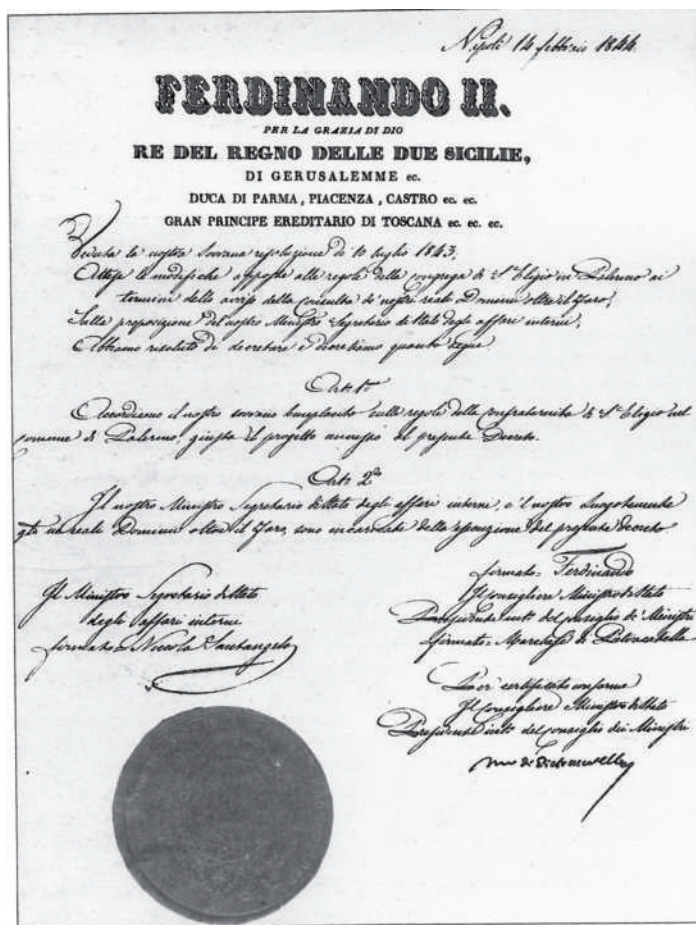 Napoli 14 febbraio 1844.
FERDINANDO II.
PER LA GRAZIA DI DIO
RE DEL REGNO DELLE DUE SICILIE,
DI GERUSALEMME ec.
DUCA DI PARMA, PIACENZA, CASTRO ec. ec.
GRAN PRINCIPE EREDITARIO DI TOSCANA ec. ec. ec.
Veduta la nostra sovrana risoluzione di 10 luglio 1843;
Attese le modifiche apposte alle regole della congrega di S. Eligio in Palermo ai
termini dello avviso della consulta de' nostri reali Dominii oltre il Faro;
Sulla proposizione del nostro Ministro Segretario di Stato degli affari interni;
Abbiamo risoluto di decretare e decretiamo quanto segue.
Art. 1º
Accordiamo il nostro sovrano beneplacito sulle regole della confraternita di S. Eligio nel
comune di Palermo, giusta il progetto annesso al presente Decreto.
Art. 2º
Il nostro Ministro Segretario di Stato degli affari interni, e'l nostro Luogotenente
ne' reali Dominii oltre il Faro, sono incaricati della esecuzione del presente decreto.
firmato= Ferdinando
Il Ministro Segretario di Stato
degli affari interni
firmato= Nicola Santangelo
Il Consigliere Ministro di Stato
Presidente int. del consiglio de' Ministri
firmato= Marchese di Pietracatella
Per certificato conforme
Il Consigliere Ministro di Stato
Presidente int. del Consiglio dei Ministri
di Pietracatella